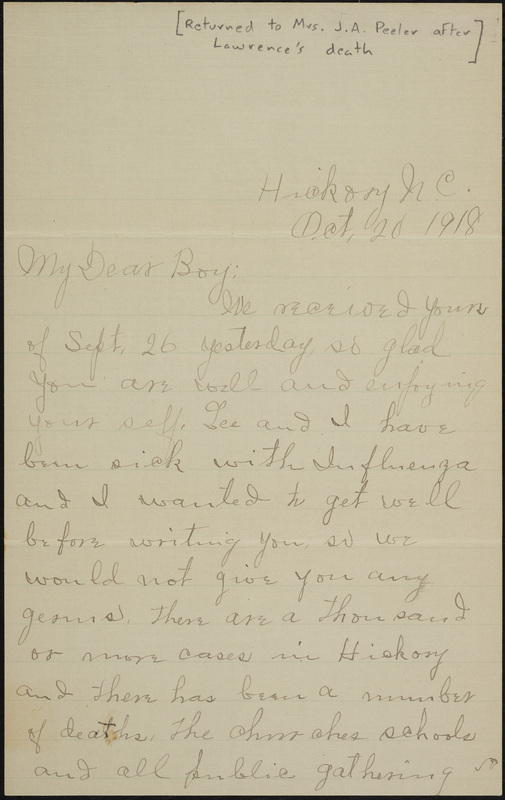 [Returned to Mrs. J.A. Peeler after
Lawrence's death]
Hickory N.C.
Oct, 20 1918
My Dear Boy:
We received yours
of Sept, 26 yesterday, so glad
you are well and enjoying
your self. Lee and I have
been sick with Influenza
and I wanted to get well
before writing you, so we
would not give you any
germs. There are a thousand
or more cases in Hickory
and there has been a number
of deaths, the churches schools
and all public gathering